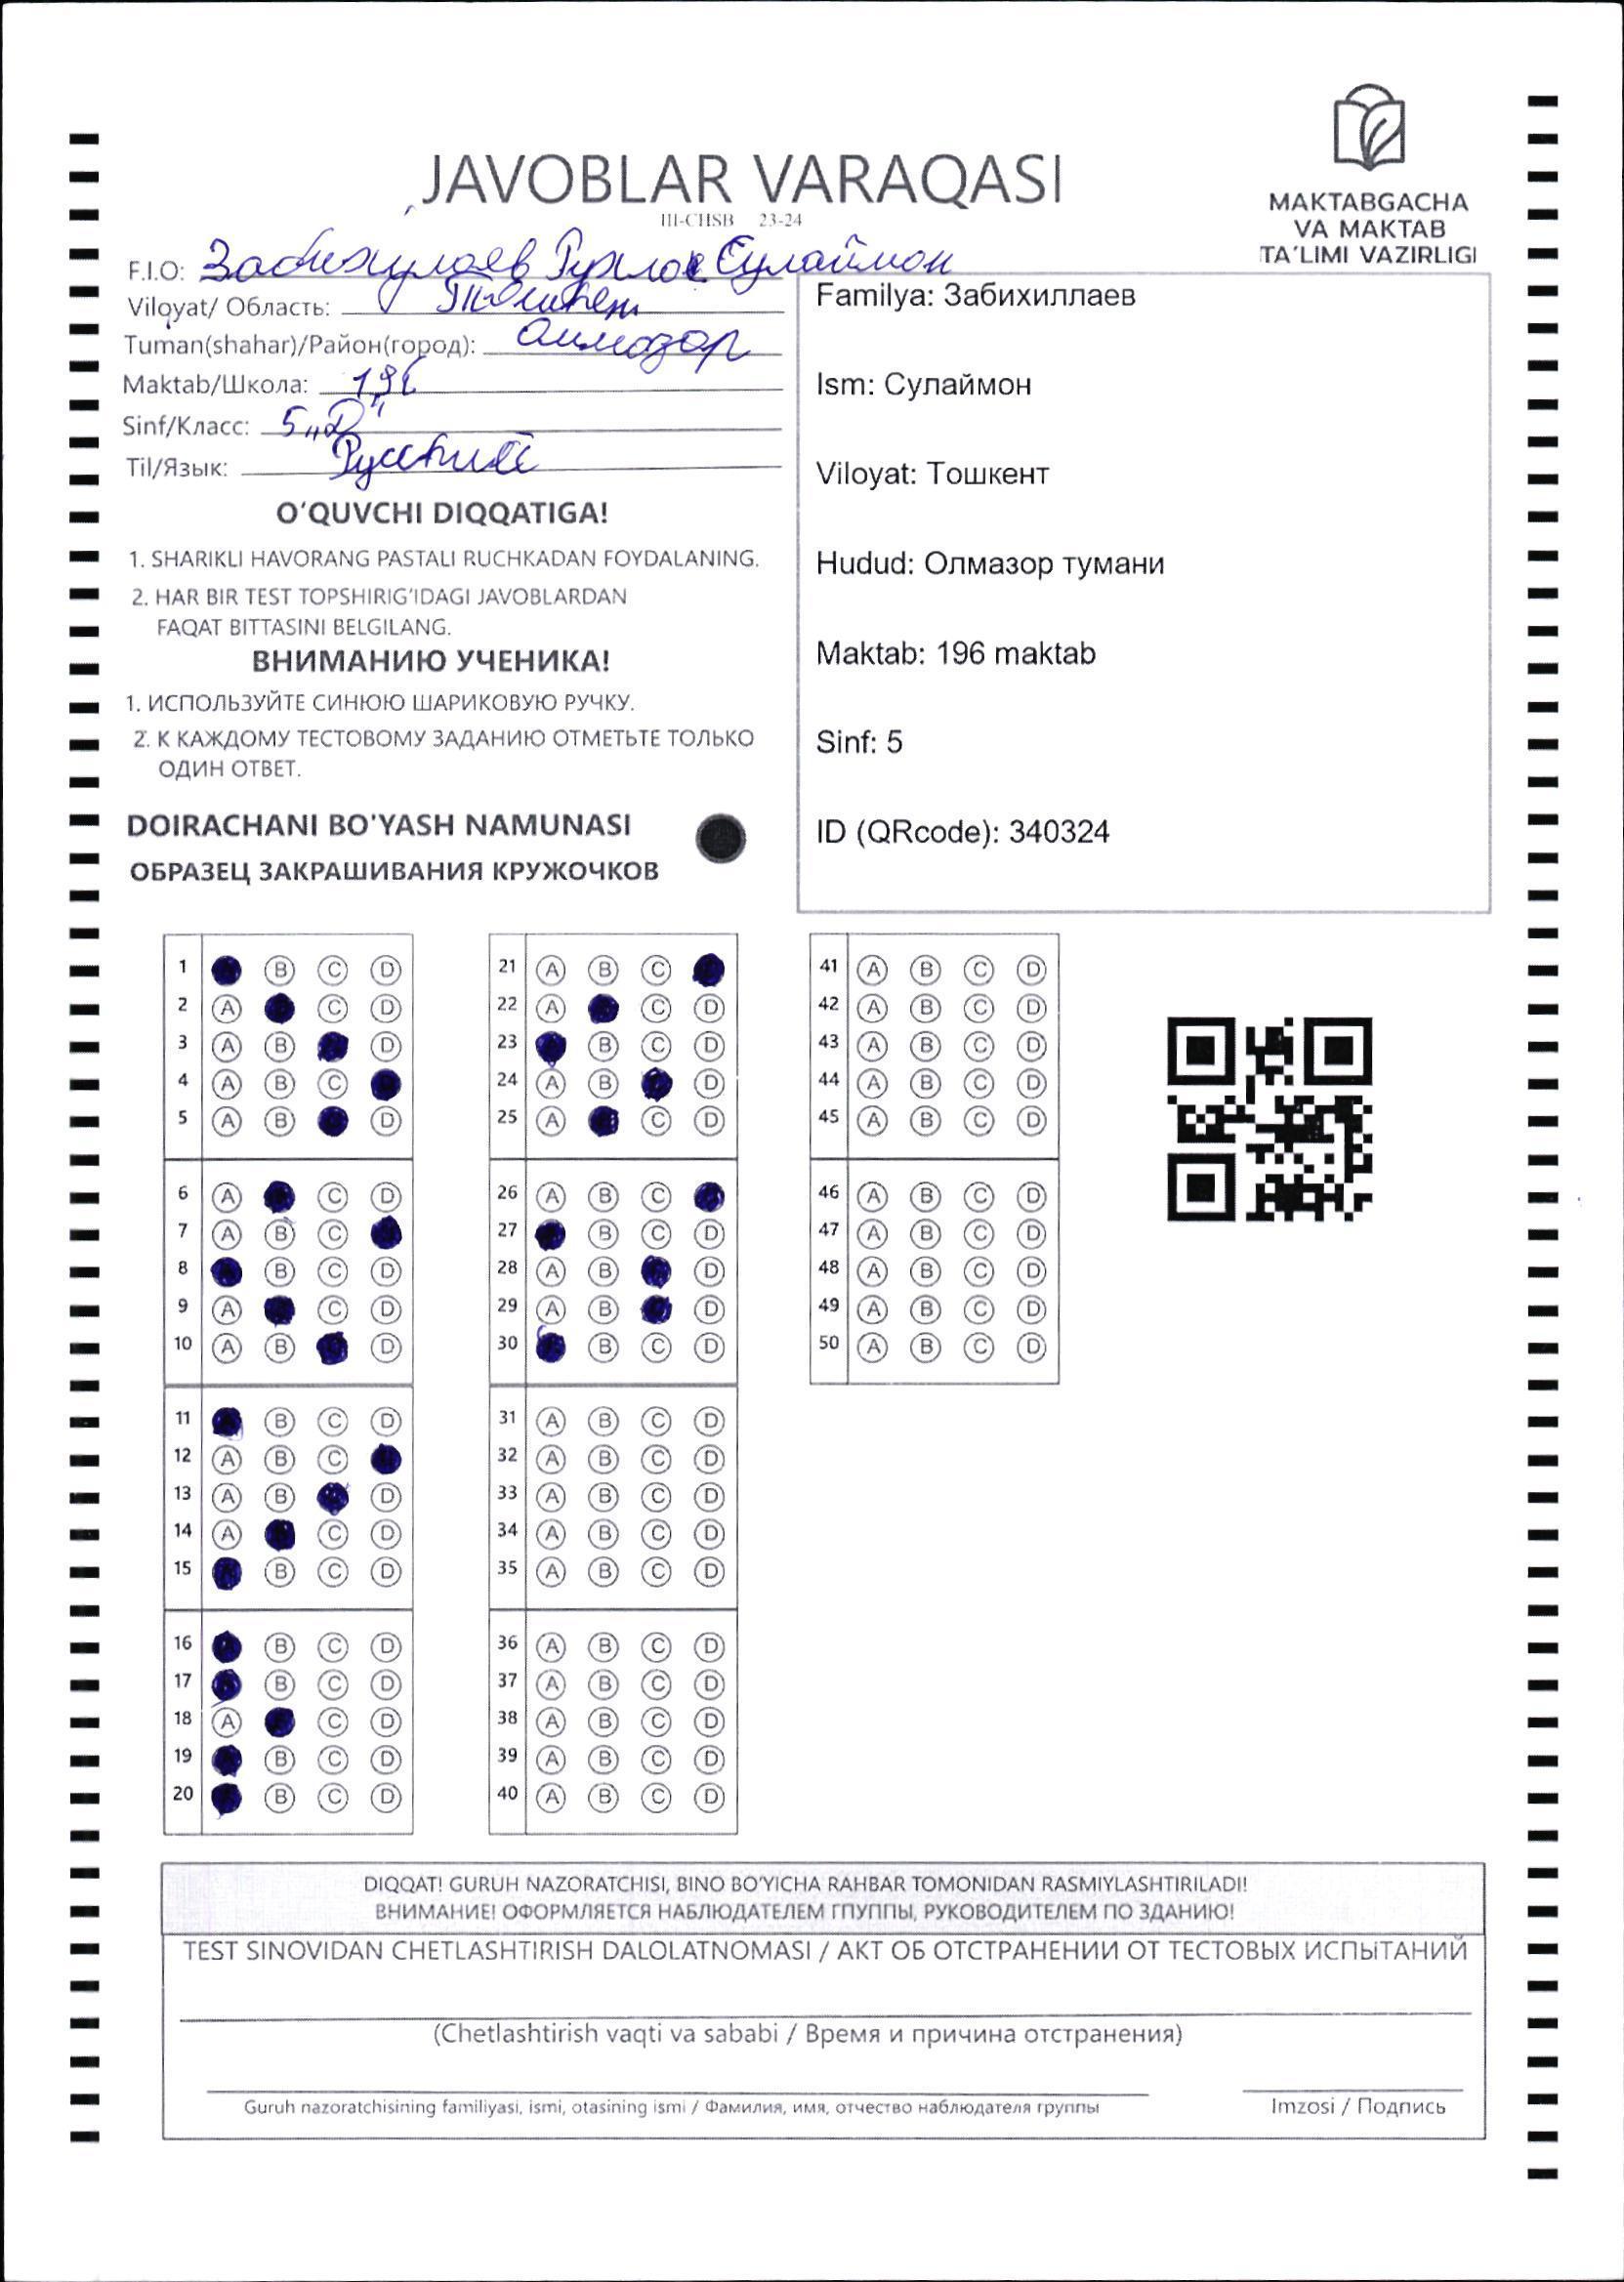 MAKTABGACHA
VA MAKTAB
TA'LIMI VAZIRLIGI
JAVOBLAR VARAQASI
III-CHSB 23-24
F.I.O: Забихуллаев Сулаймон
Viloyat/ Область:
Tuman(shahar)/Район(город): Олмазор
Maktab/Школа: 196
Sinf/Класс: 5 „D"
Til/Язык: Русский
Familya: Забихиллаев
Ism: Сулаймон
Viloyat: Тошкент
Hudud: Олмазор тумани
Maktab: 196 maktab
Sinf: 5
ID (QRcode): 340324
O'QUVCHI DIQQATIGA!
1. SHARIKLI HAVORANG PASTALI RUCHKADAN FOYDALANING.
2. HAR BIR TEST TOPSHIRIG'IDAGI JAVOBLARDAN
FAQAT BITTASINI BELGILANG.
ВНИМАНИЮ УЧЕНИКА!
1. ИСПОЛЬЗУЙТЕ СИНЮЮ ШАРИКОВУЮ РУЧКУ.
2. К КАЖДОМУ ТЕСТОВОМУ ЗАДАНИЮ ОТМЕТЬТЕ ТОЛЬКО
ОДИН ОТВЕТ.
DOIRACHANI BO'YASH NAMUNASI
ОБРАЗЕЦ ЗАКРАШИВАНИЯ КРУЖОЧКОВ
1 B C D
2 A C D
3 A B D
4 A B C
5 A B D
6 A C D
7 A B C
8 B C D
9 A C D
10 A B D
11 B C D
12 A B C
13 A B D
14 A C D
15 B C D
16 B C D
17 B C D
18 A C D
19 B C D
20 B C D
21 A B C
22 A C D
23 B C D
24 A B D
25 A C D
26 A B C
27 B C D
28 A B D
29 A B D
30 B C D
31 A B C D
32 A B C D
33 A B C D
34 A B C D
35 A B C D
36 A B C D
37 A B C D
38 A B C D
39 A B C D
40 A B C D
41 A B C D
42 A B C D
43 A B C D
44 A B C D
45 A B C D
46 A B C D
47 A B C D
48 A B C D
49 A B C D
50 A B C D
DIQQAT! GURUH NAZORATCHISI, BINO BO'YICHA RAHBAR TOMONIDAN RASMIYLASHTIRILADI!
ВНИМАНИЕ! ОФОРМЛЯЕТСЯ НАБЛЮДАТЕЛЕМ ГПУППЫ, РУКОВОДИТЕЛЕМ ПО ЗДАНИЮ!
TEST SINOVIDAN CHETLASHTIRISH DALOLATNOMASI / АКТ ОБ ОТСТРАНЕНИИ ОТ ТЕСТОВЫХ ИСПЫТАНИЙ
(Chetlashtirish vaqti va sababi / Время и причина отстранения)
Guruh nazoratchisining familiyasi, ismi, otasining ismi / Фамилия, имя, отчество наблюдателя группы
Imzosi / Подпись